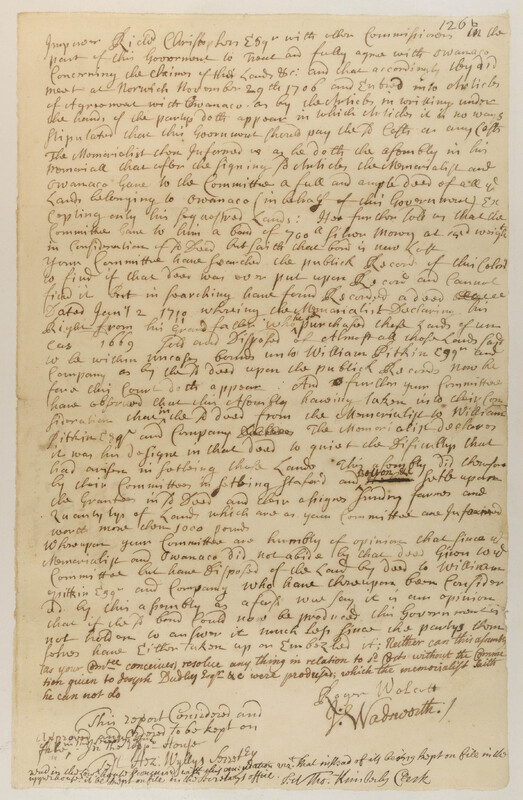 126b
Impower Richd Christophers Esqr with other Commissioners in the
part of this Goverment to Treat and fully agree with Owanaco
Concerning the Claimes of this Lands &c: and that accordingly they did
meet at Norwich November 29th 1706 and Entred into Articles
of Agreement with Owanaco as by the Articles in writing under
the hands of the partys doth appear in which Articles it is no ways
stipulated that this Goverment should pay the sd Costs or any Costs
The Memorialist then Informed us as he doth the assembly in his
Memoriall that after the signing sd Articles the Memorialist and
Owanaco Gave to the Committee a full and ample deed of all ye
Lands belonging to Owanaco (in behalf of this Goverment) Ex
cepting only his sequestred Lands: He further told us that the
Committee Gave to him a bond of 700ll Silver Money at weight
in Consideration of sd Deed but saith that bond is now Lost
Your Committee have searched the publick Record of this Colony
to find if that deed was ever put upon Record and Cannot
find it But in searching have found Recorded a deed
Dated Janry 2 1710 wherein the Memorialist Declaring his
Right from his Grand father who purchased those Lands of un
cas 1669 Sold and Disposed of Almost all those Lands said
to be within Uncases bounds unto William Pitkin Esqr and
Company as by the sd deed upon the publick Records now be
fore this Court doth appear: And further your Committee
have observed that this Assembly having taken into their Con
sideration the sd deed from the Memorialist to William
Pitkin Esqr and Company The Memorialist declares
it was his designe in that deed to quiet the Difficultys that
had arisen in Setling those Lands This assembly did therefore
by their Committees in setling Staford and Bolton settle upon
the Grantees in sd Deed and their assignes sundry farmes and
Quantitys of Lands which are as your Committee are Informed
worth more then 1000 pounds
Whereupon your Committee are humbly of opinion that since ye
Memorialist and Owanaco did not abide by that deed Given to ye
Committee but have disposed of the Land by deed to William
Pitkin Esqr and Company who have thereupon been Consider
ed by this assembly as afores'd wee say it is our opinion
that if the sd bond Could now be produced this Goverment is
not holden to answer it much less since the partys them
selves have Either taken up or Embezled it: Neither can this assembly
(as your Comtee conceives) resolve any thing in relation to sd Costs without the Comis
tion given to Joseph Dudley Esqr &c were produced, which the memorialist saith
he can not do
Roger Wolcott
Js. Wadsworth
This report Considered and
approved & ordered to be kept on
file in the upper House
Test Hez: Wyllys Secretry
Read in the and with this that instead of its being kept on file in the
upper house it be kept on file in the Secretarys office. Test Tho. Kimberly Clerk